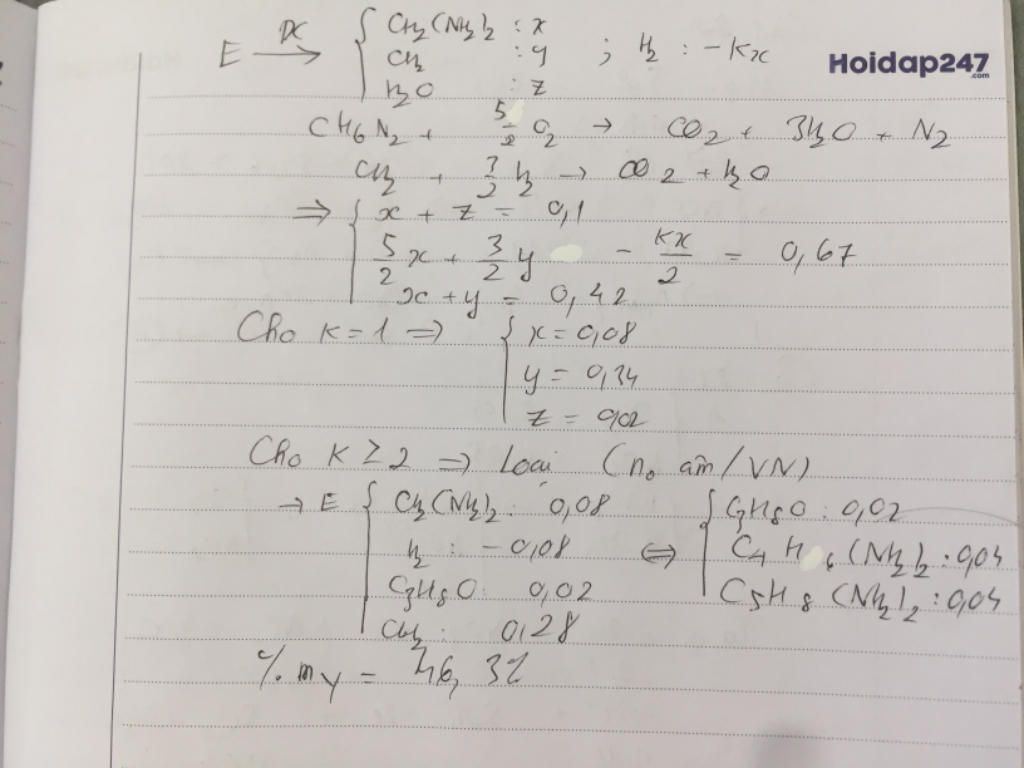 E →ĐC { CH₂(NH₂)₂ : x
CH₂ : y ; H₂ : -kx
H₂O : z
Hoidap247
.com
CH₆N₂ + 5/2 O₂ → CO₂ + 3H₂O + N₂
CH₂ + 3/2 H₂ → CO₂ + H₂O
⇒ { x + z = 0,1
5/2 x + 3/2 y - kx/2 = 0,67
x + y = 0,42
Cho k = 1 ⇒ { x = 0,08
y = 0,34
z = 0,02
Cho k ≥ 2 ⇒ Loại (n₀ âm/VN)
→ E { CH₂(NH₂)₂ : 0,08 { C₃H₈O : 0,02
H₂ : -0,08 ⇔ C₄H₆(NH₂)₂ : 0,04
C₃H₈O : 0,02 C₅H₈(NH₂)₂ : 0,04
CH₂ : 0,28
% m Y = 46,3%